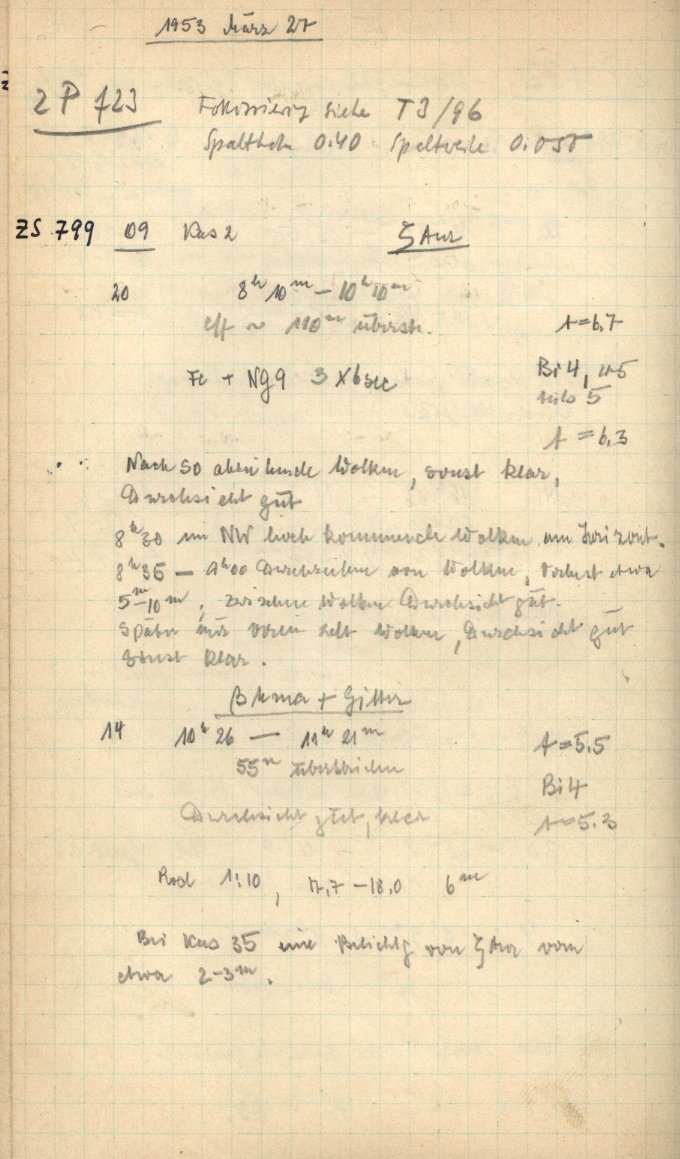 1953 März 27
2 P 723 Fokussierg siehe T3/96
Spalthöhe 0.40 Spaltweite 0.055
ZS 799 09 Kas 2 ζ Aur
20 8h 10m — 10h 10m
eff ~ 110m überstr. t=6,7
Fe + Ng9 3 x 6 sec Bi 4, 4.5
5
t = 6.3
Nach SO Wolken, sonst klar,
Durchsicht gut
8h30 im NW hoch kommende Wolken am Horizont.
8h35 — 9h00 Durchziehen von Wolken, etwa
5m–10m, zwischen Wolken Durchsicht gut.
Später nur Wolken, Durchsicht gut
sonst klar.
β Uma + Gitter
14 10h 26 — 11h 21m t=5.5
55m überstrichen
Bi 4
Durchsicht gut, klar t=5.3
Rod 1:10, 17,7 – 18,0 6m
Bei Kas 35 eine Belichtg von ζ Aur von
etwa 2–3m.